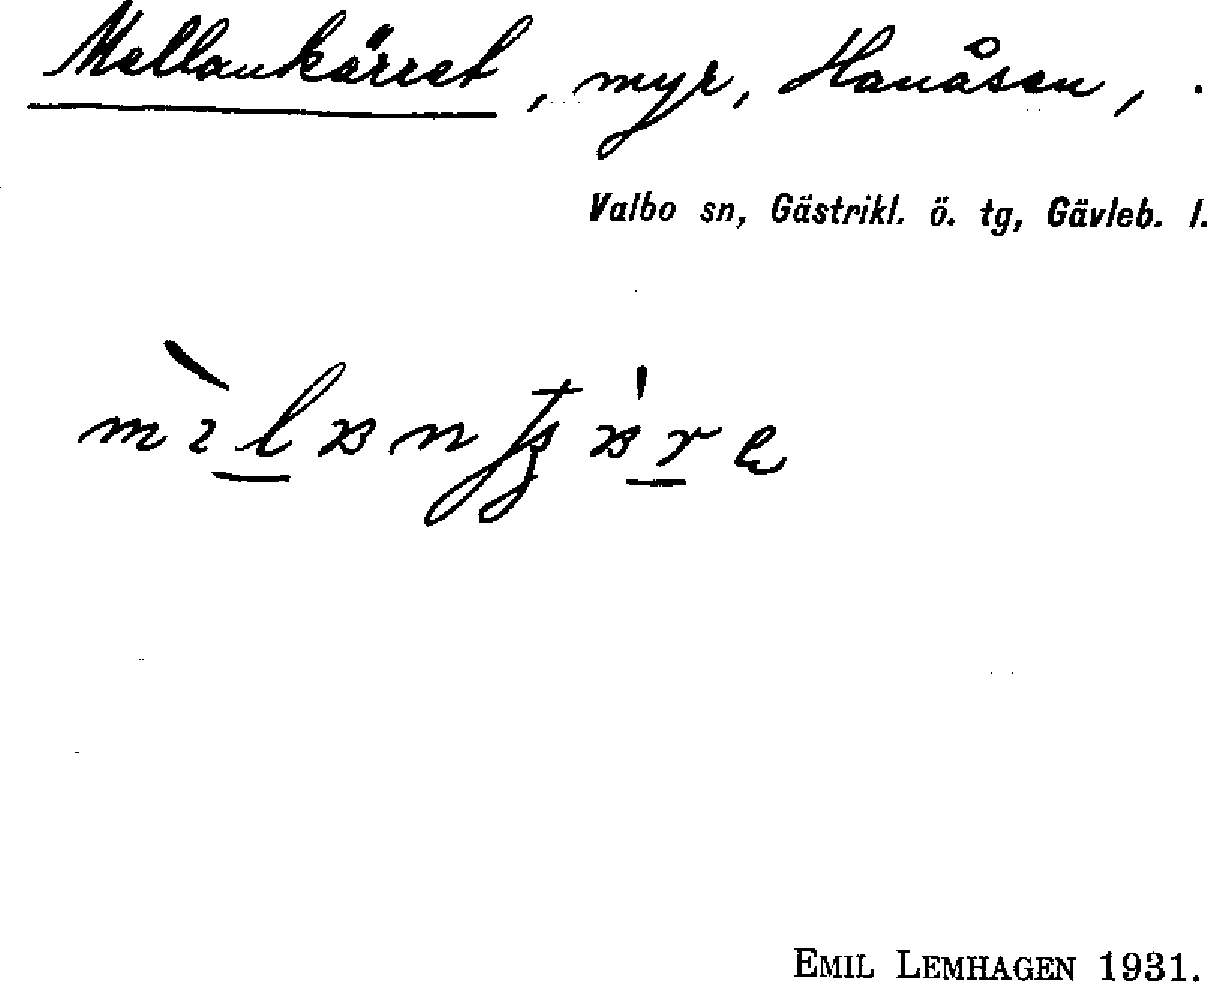 Mellankärret, myr, Hanåsen, .
Valbo sn, Gästrikl. ö. tg, Gävleb. l.
EMIL LEMHAGEN 1931.